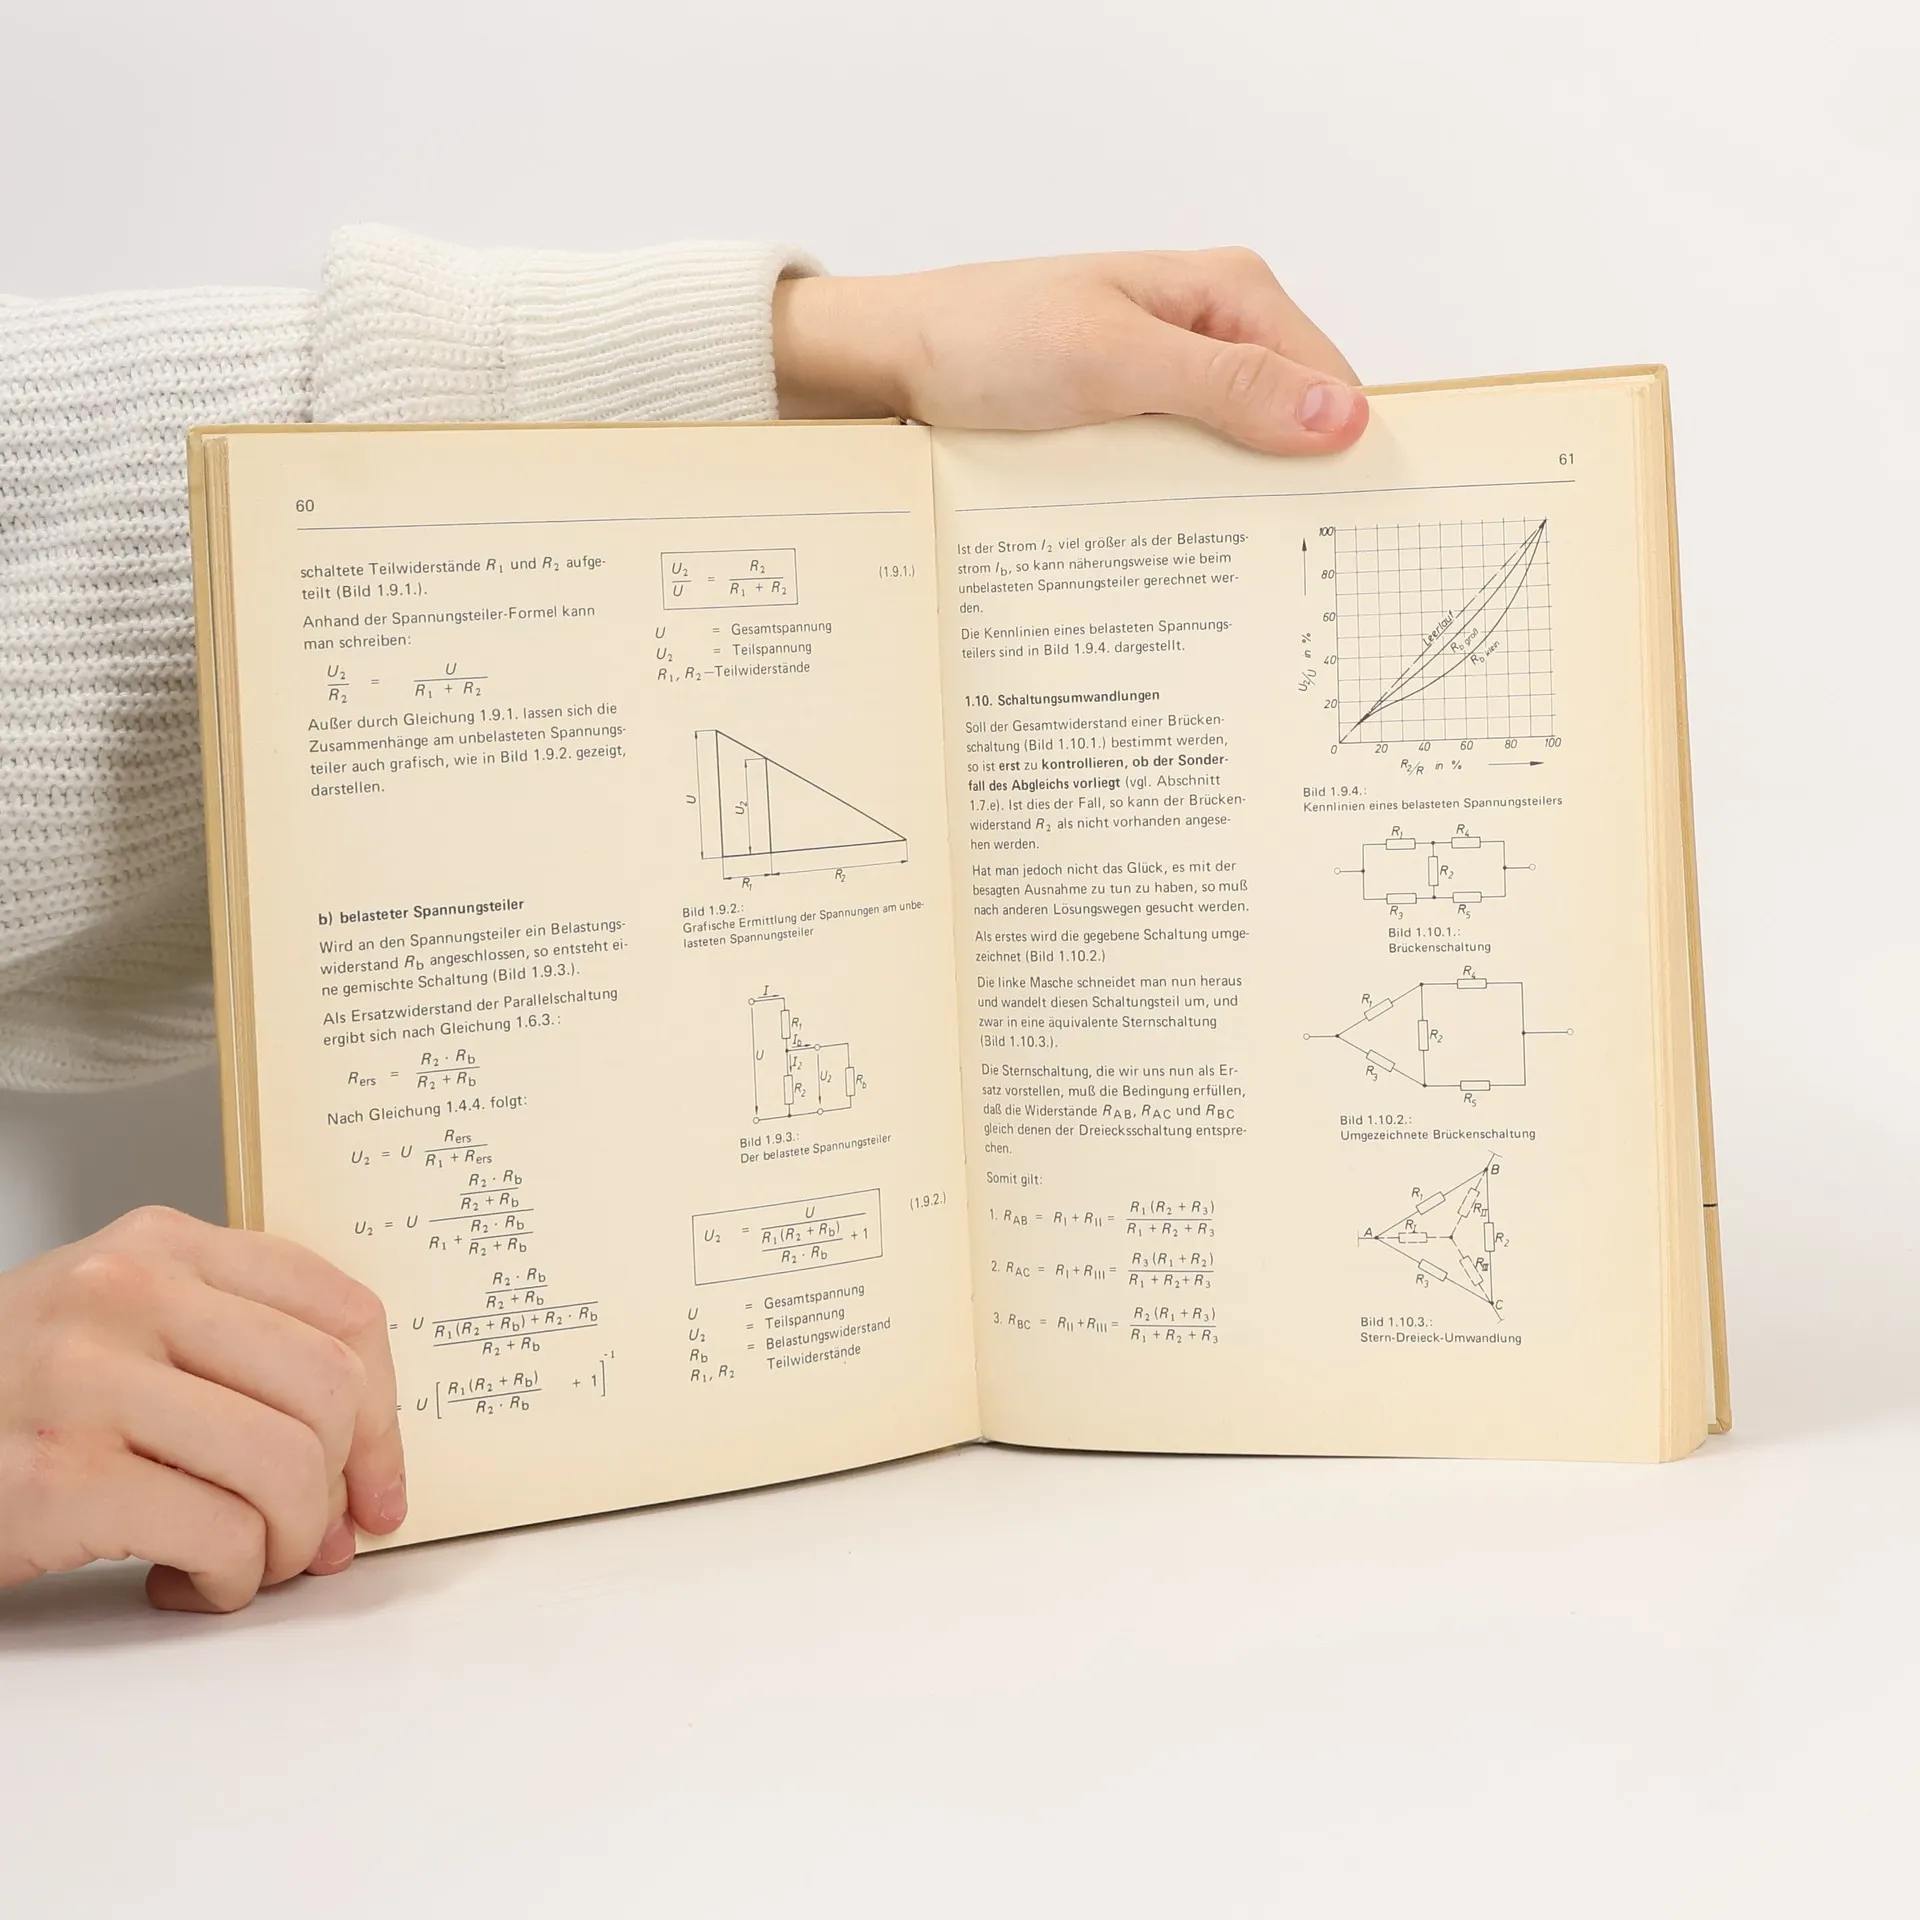 60
schaltete Teilwiderstände R1 und R2 aufge-
teilt (Bild 1.9.1.).
Anhand der Spannungsteiler-Formel kann
man schreiben:
U2/R2 = U/(R1 + R2)
Außer durch Gleichung 1.9.1. lassen sich die
Zusammenhänge am unbelasteten Spannungs-
teiler auch grafisch, wie in Bild 1.9.2. gezeigt,
darstellen.
b) belasteter Spannungsteiler
Wird an den Spannungsteiler ein Belastungs-
widerstand Rb angeschlossen, so entsteht ei-
ne gemischte Schaltung (Bild 1.9.3.).
Als Ersatzwiderstand der Parallelschaltung
ergibt sich nach Gleichung 1.6.3.:
Rers = (R2 · Rb)/(R2 + Rb)
Nach Gleichung 1.4.4. folgt:
U2 = U Rers/(R1 + Rers)
U2 = U ((R2 · Rb)/(R2 + Rb))/(R1 + (R2 · Rb)/(R2 + Rb))
= U ((R2 · Rb)/(R2 + Rb))/((R1 (R2 + Rb) + R2 · Rb)/(R2 + Rb))
= U [(R1 (R2 + Rb))/(R2 · Rb) + 1]-1
U2/U = R2/(R1 + R2) (1.9.1.)
U = Gesamtspannung
U2 = Teilspannung
R1, R2—Teilwiderstände
U
U2
R1 R2
Bild 1.9.2.:
Grafische Ermittlung der Spannungen am unbe-
lasteten Spannungsteiler
I
R1
Ib
U I2
R2 U2 Rb
Bild 1.9.3.:
Der belastete Spannungsteiler
U2 = U/((R1 (R2 + Rb))/(R2 · Rb) + 1) (1.9.2.)
U = Gesamtspannung
U2 = Teilspannung
Rb = Belastungswiderstand
R1, R2 Teilwiderstände
61
Ist der Strom I2 viel größer als der Belastungs-
strom Ib, so kann näherungsweise wie beim
unbelasteten Spannungsteiler gerechnet wer-
den.
Die Kennlinien eines belasteten Spannungs-
teilers sind in Bild 1.9.4. dargestellt.
1.10. Schaltungsumwandlungen
Soll der Gesamtwiderstand einer Brücken-
schaltung (Bild 1.10.1.) bestimmt werden,
so ist erst zu kontrollieren, ob der Sonder-
fall des Abgleichs vorliegt (vgl. Abschnitt
1.7.e). Ist dies der Fall, so kann der Brücken-
widerstand R2 als nicht vorhanden angese-
hen werden.
Hat man jedoch nicht das Glück, es mit der
besagten Ausnahme zu tun zu haben, so muß
nach anderen Lösungswegen gesucht werden.
Als erstes wird die gegebene Schaltung umge-
zeichnet (Bild 1.10.2.)
Die linke Masche schneidet man nun heraus
und wandelt diesen Schaltungsteil um, und
zwar in eine äquivalente Sternschaltung
(Bild 1.10.3.).
Die Sternschaltung, die wir uns nun als Er-
satz vorstellen, muß die Bedingung erfüllen,
daß die Widerstände RAB, RAC und RBC
gleich denen der Dreiecksschaltung entspre-
chen.
Somit gilt:
1. RAB = RI + RII = (R1 (R2 + R3))/(R1 + R2 + R3)
2. RAC = RI + RIII = (R3 (R1 + R2))/(R1 + R2 + R3)
3. RBC = RII + RIII = (R2 (R1 + R3))/(R1 + R2 + R3)
100
80
60
40
20
0 20 40 60 80 100
U2/U in %
Leerlauf
Rb groß
Rb klein
R2/R in %
Bild 1.9.4.:
Kennlinien eines belasteten Spannungsteilers
R1 R4
R2
R3 R5
Bild 1.10.1.:
Brückenschaltung
R4
R1
R2
R3
R5
Bild 1.10.2.:
Umgezeichnete Brückenschaltung
B
R1 RII
A RI R2
R3 RIII
C
Bild 1.10.3.:
Stern-Dreieck-Umwandlung